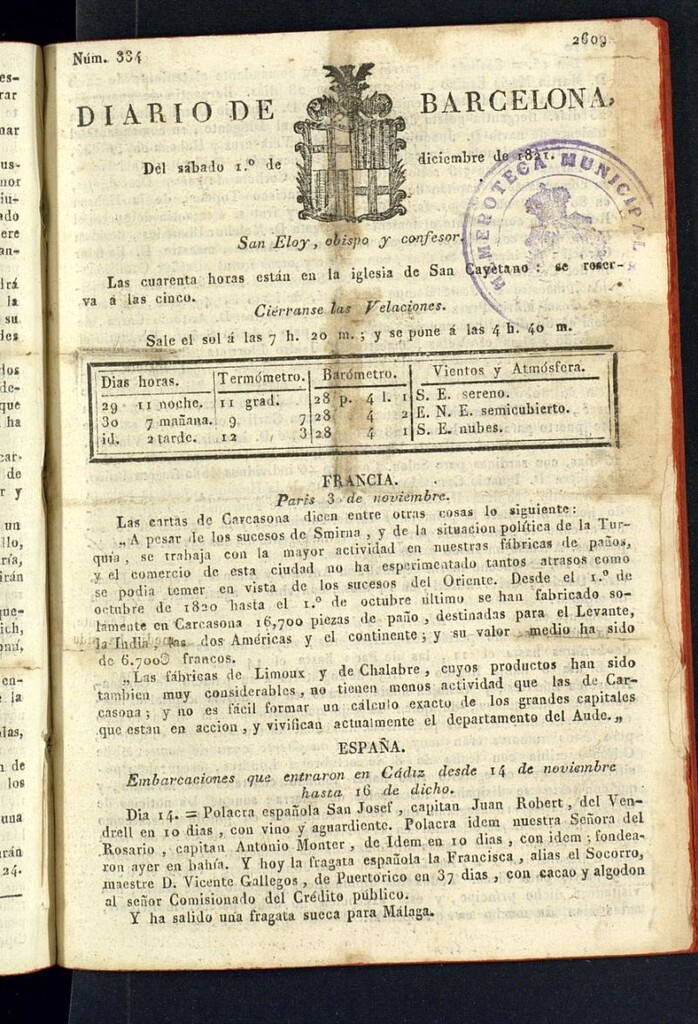 Núm. 334
2609
DIARIO DE BARCELONA,
Del sábado 1.º de diciembre de 1821.
HEMEROTECA MUNICIPAL
San Eloy, obispo y confesor.
Las cuarenta horas están en la iglesia de San Cayetano: se reser-
va á las cinco.
Ciérranse las Velaciones.
Sale el sol á las 7 h. 20 m.; y se pone á las 4 h. 40 m.
Dias horas. Termómetro. Barómetro. Vientos y Atmósfera.
29 11 noche. 11 grad. 28 p. 4 l. 1 S. E. sereno.
30 7 mañana. 9 7 28 4 2 E. N. E. semicubierto.
id. 2 tarde. 12 3 28 4 1 S. E. nubes.
FRANCIA.
Paris 3 de noviembre.
Las cartas de Carcasona dicen entre otras cosas lo siguiente:
„A pesar de los sucesos de Smirna, y de la situacion política de la Tur-
quía, se trabaja con la mayor actividad en nuestras fábricas de paños,
y el comercio de esta ciudad no ha esperimentado tantos atrasos como
se podia temer en vista de los sucesos del Oriente. Desde el 1.º de
octubre de 1820 hasta el 1.º de octubre último se han fabricado so-
lamente en Carcasona 16,700 piezas de paño, destinadas para el Levante,
la India, las dos Américas y el continente; y su valor medio ha sido
de francos.
„Las fábricas de Limoux y de Chalabre, cuyos productos han sido
tambien muy considerables, no tienen menos actividad que las de Car-
casona; y no es fácil formar un cálculo exacto de los grandes capitales
que estan en accion, y vivifican actualmente el departamento del Aude.„
ESPAÑA.
Embarcaciones que entraron en Cádiz desde 14 de noviembre
hasta 16 de dicho.
Dia 14. = Polacra española San Josef, capitan Juan Robert, del Ven-
drell en 10 dias, con vino y aguardiente. Polacra idem nuestra Señora del
Rosario, capitan Antonio Monter, de Idem en 10 dias, con idem; fondea-
ron ayer en bahía. Y hoy la fragata española la Francisca, alias el Socorro,
maestre D. Vicente Gallegos, de Puertorico en 37 dias, con cacao y algodon
al señor Comisionado del Crédito público.
Y ha salido una fragata sueca para Málaga.